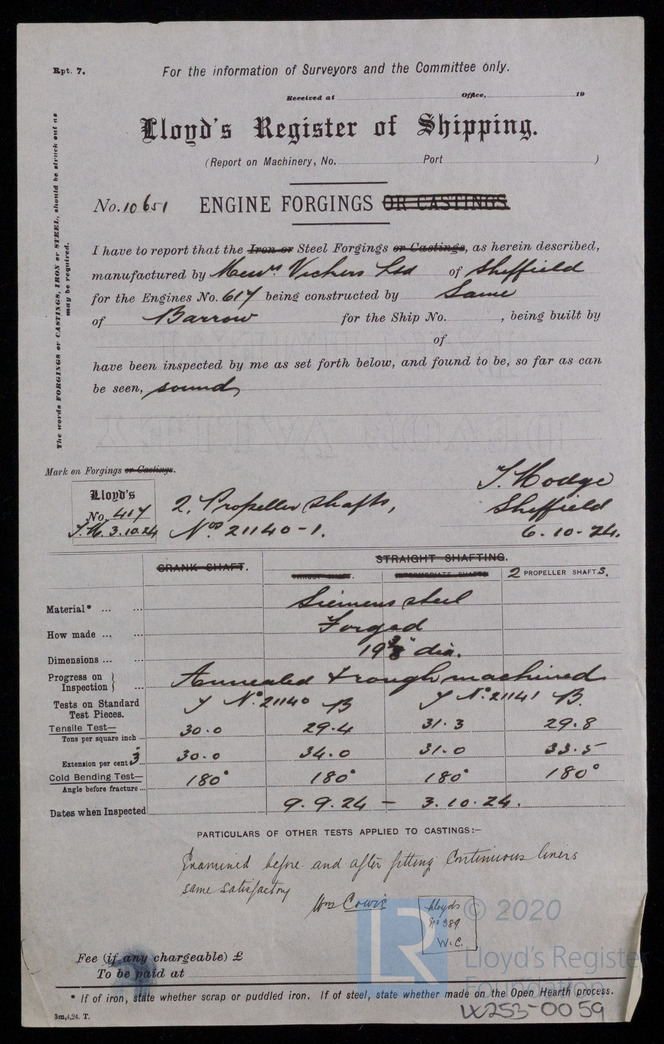 Rpt. 7.
For the information of Surveyors and the Committee only.
Received at Office, 19
Lloyd's Register of Shipping.
(Report on Machinery, No. Port )
The words FORGINGS or CASTINGS, IRON or STEEL, should be struck out as
may be required.
No. 10651 ENGINE FORGINGS OR CASTINGS
I have to report that the Iron or Steel Forgings or Castings, as herein described,
manufactured by Messrs Vickers Ltd of Sheffield
for the Engines No. 617 being constructed by Same
of Barrow for the Ship No. , being built by
of
have been inspected by me as set forth below, and found to be, so far as can
be seen, sound
Mark on Forgings or Castings.
Lloyd's
No. 417
J.H. 3.10.24
2. Propeller shafts,
Nos 21140-1.
J. Hodge
Sheffield
6-10-24.
CRANK SHAFT.
STRAIGHT SHAFTING.
THRUST SHAFT. INTERMEDIATE SHAFTS 2 PROPELLER SHAFTS.
Material* ... ... Siemens steel
How made ... ... Forged
Dimensions ... ... 19 3/8" dia.
Progress on Inspection } ... Annealed & rough machined
Tests on Standard Test Pieces. T No. 21140 B T No. 21141 B.
Tensile Test— Tons per square inch ... 30.0 29.4 31.3 29.8
Extension per cent 3" ... 30.0 34.0 31.0 33.5
Cold Bending Test— Angle before fracture ... 180° 180° 180° 180°
Dates when Inspected 9.9.24 – 3.10.24.
PARTICULARS OF OTHER TESTS APPLIED TO CASTINGS:–
Examined before and after fitting Continuous liners
same satisfactory
Wm Cowie
Lloyds
No 989
W.C.
Fee (if any chargeable) £
To be paid at
* If of iron, state whether scrap or puddled iron. If of steel, state whether made on the Open Hearth process.
3m,4,24. T.
W253-0059
LR
© 2020
Lloyd's Register
Foundation